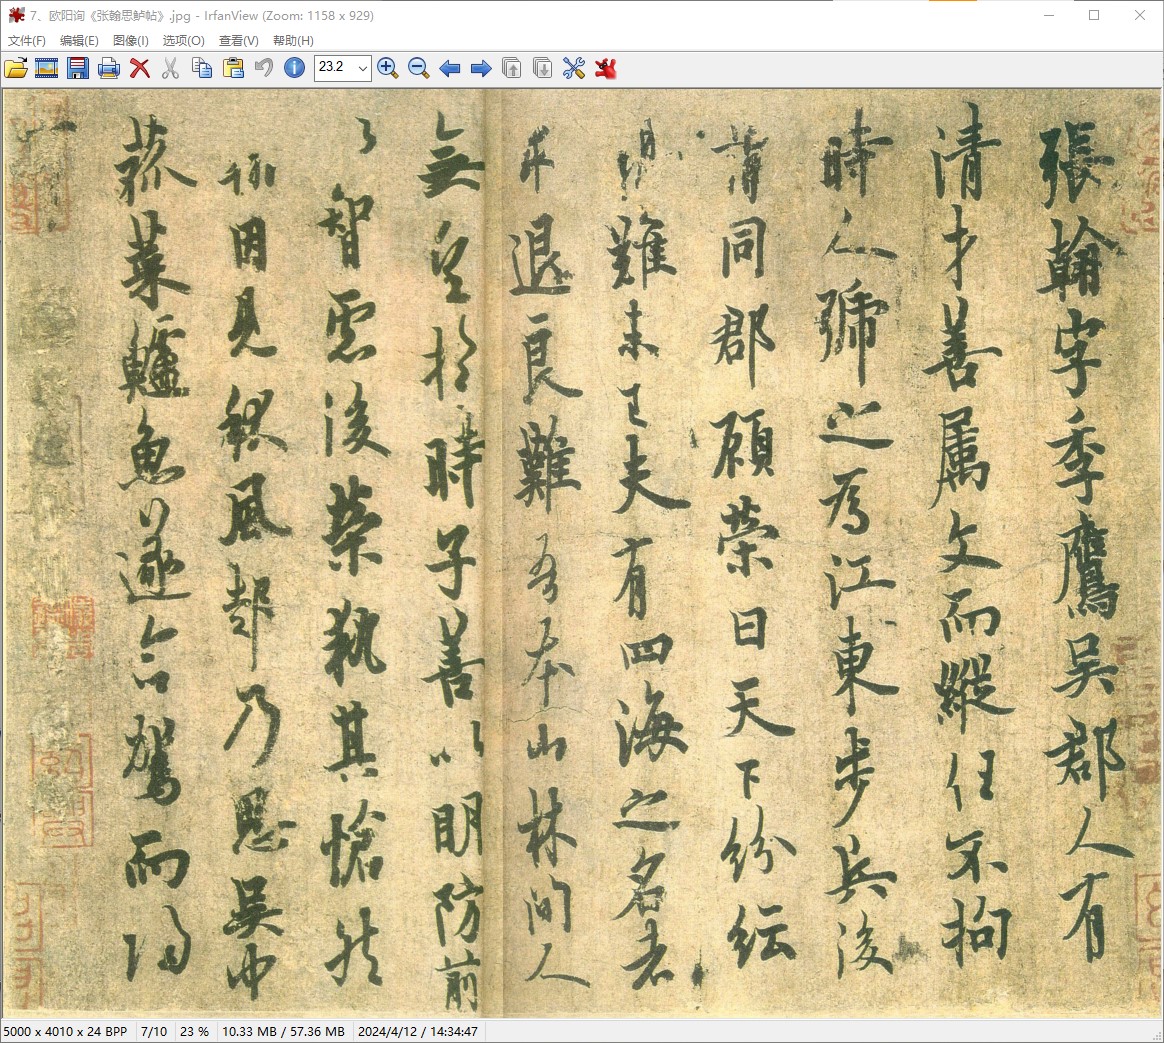 7、欧阳询《张翰思鲈帖》.jpg - IrfanView (Zoom: 1158 x 929)
文件(F) 编辑(E) 图像(I) 选项(O) 查看(V) 帮助(H)
23.2
張翰字季鷹吳郡人有
清才善属文而縱任不拘
時人號之為江東步兵後
謂同郡顧榮曰天下紛紜
難未已夫有四海之名者
求退良難吾本山林間人
無望於時子善以明防前
智慮後榮執其愴然
因見秋風起乃思吳中
菰菜鱸魚遂命駕而歸
5000 x 4010 x 24 BPP 7/10 23 % 10.33 MB / 57.36 MB 2024/4/12 / 14:34:47